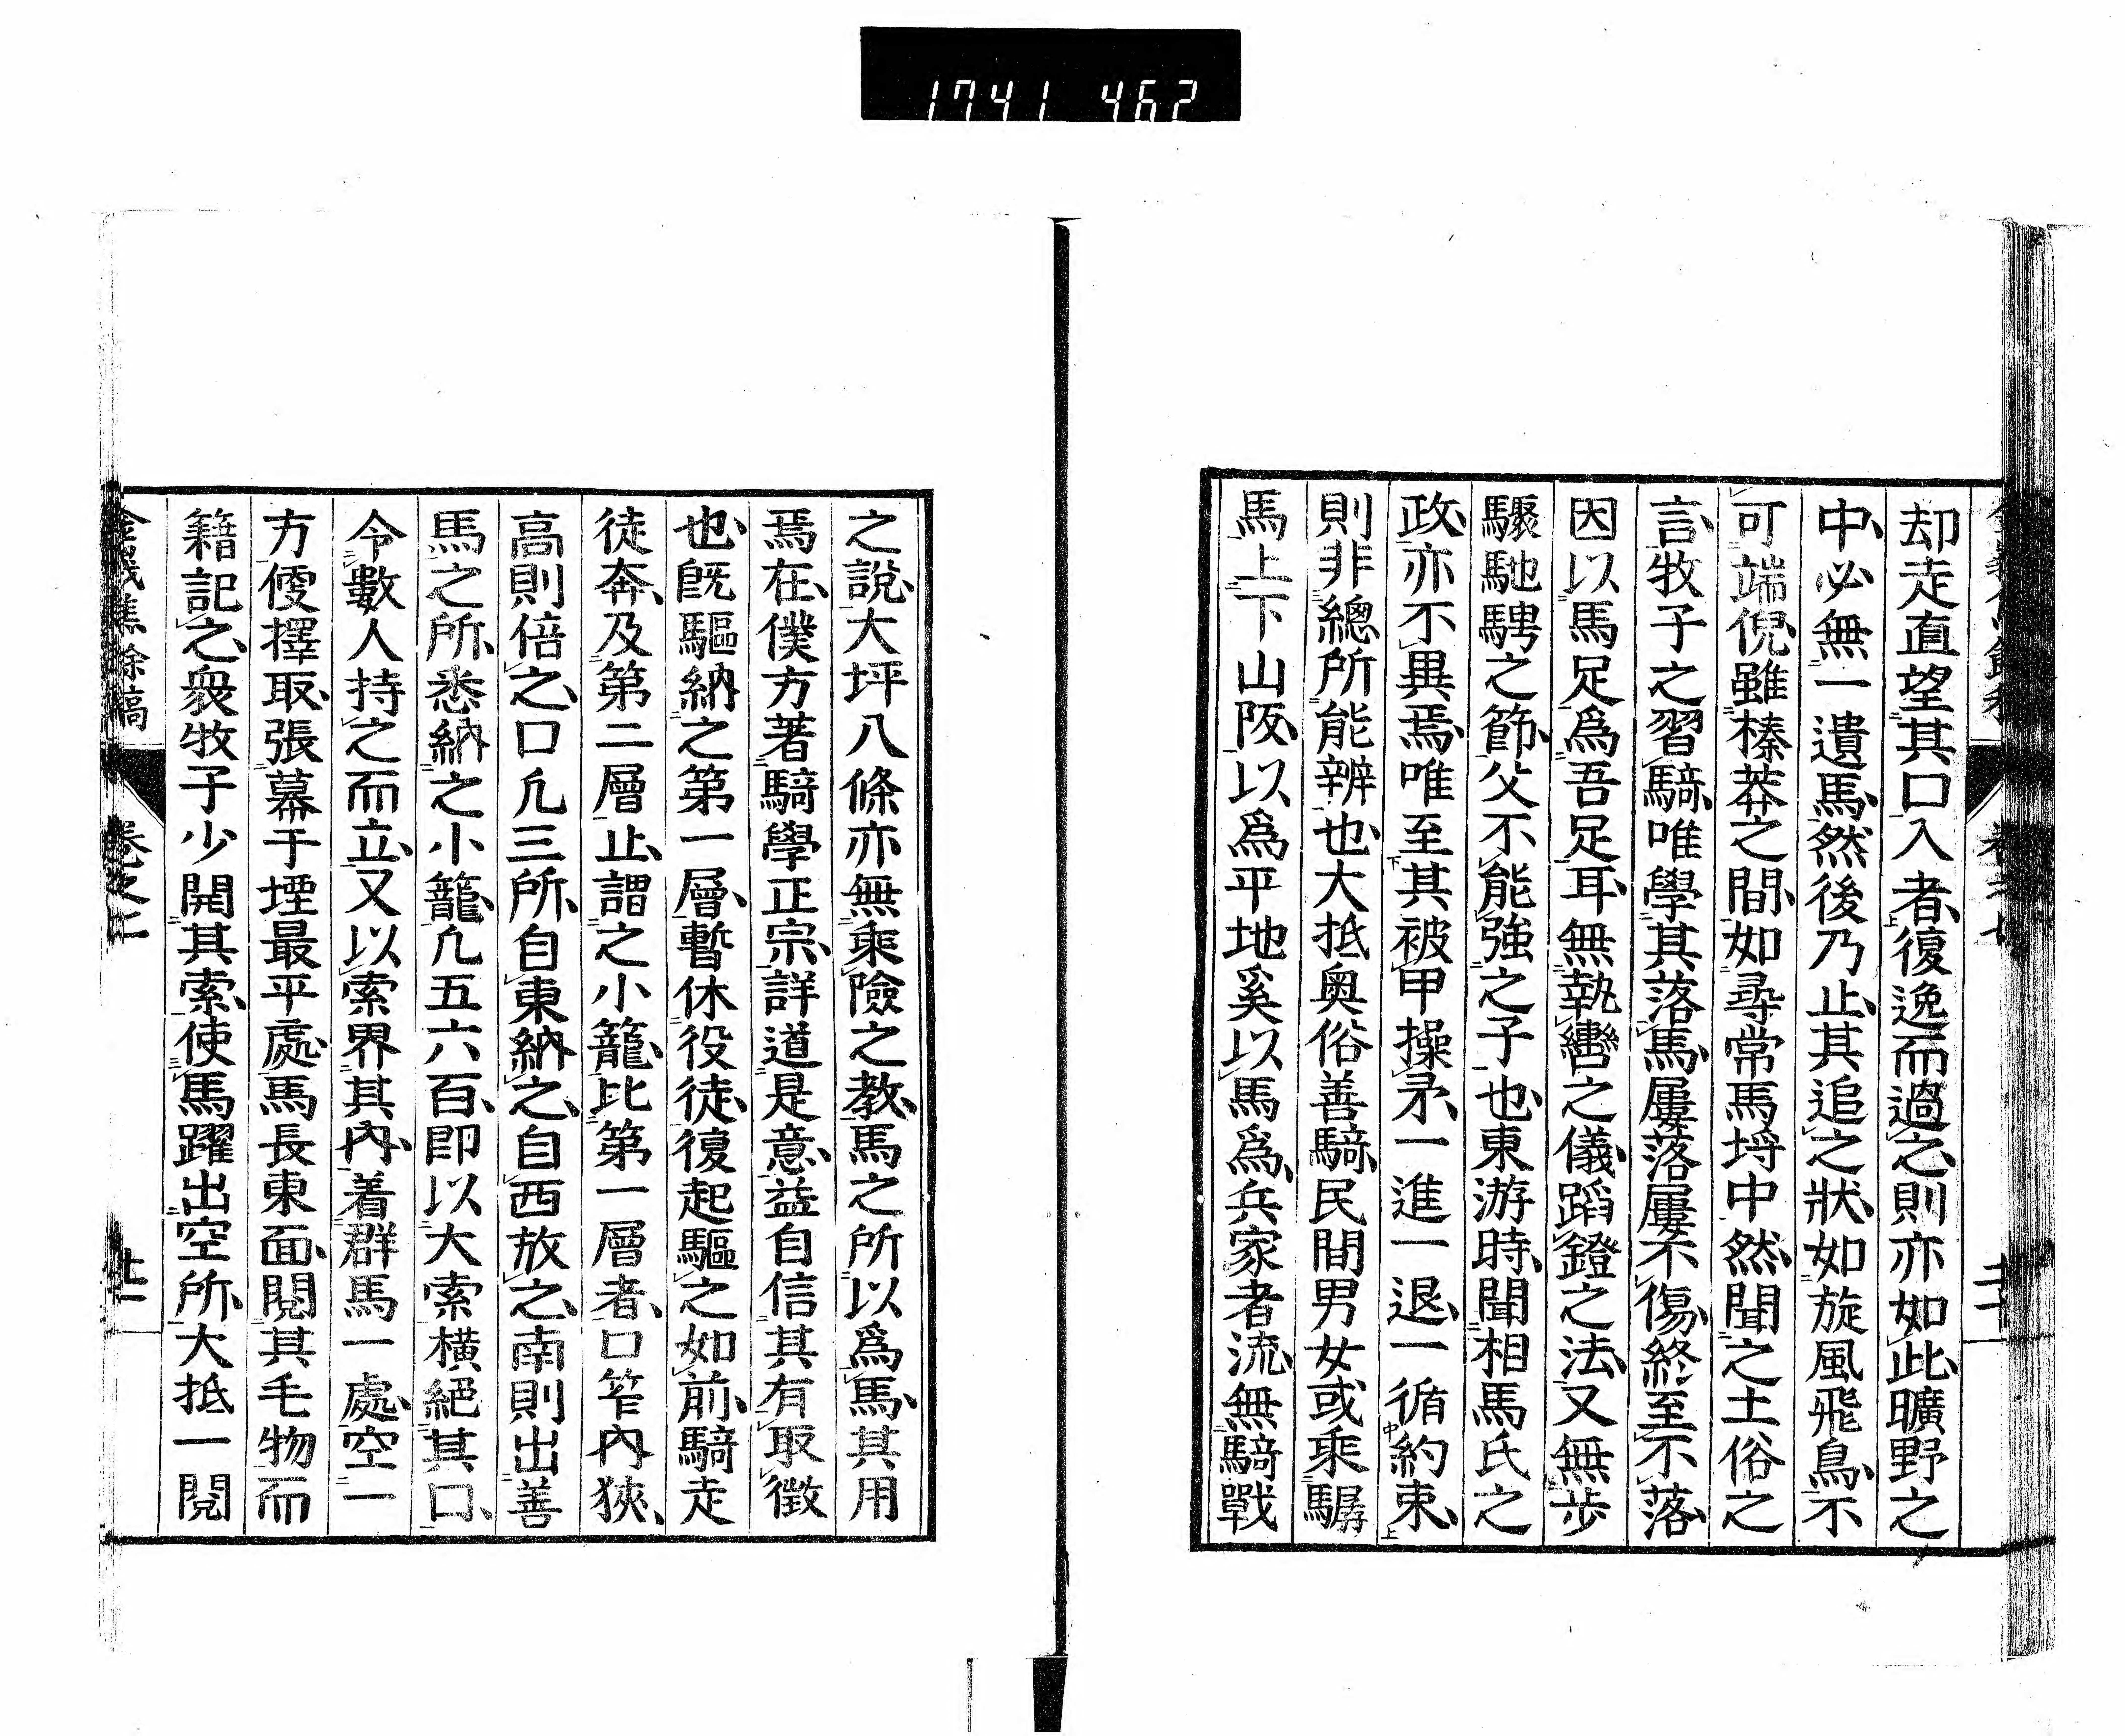 1741 462
却走直望其口入者、復逸而過之、則亦如此、曠野之
中、必無一遺馬、然後乃止、其追之狀、如旋風飛鳥、不
可端倪、雖榛莽之間、如尋常馬埒中然、聞之土俗之
言、牧子之習騎、唯學其落馬、屢落屢不傷、終至不落、
因以馬足爲吾足耳、無執轡之儀、蹈鐙之法、又無步
驟馳騁之節、父不能強之子也、東游時、聞相馬氏之
政、亦不異焉、唯至其被甲操矛、一進一退、一循約束、
則非總所能辨也、大抵奥俗善騎、民間男女或乘驏
馬上下山阪、以爲平地、奚以馬爲、兵家者流、無騎戰
之說、大坪八條亦無乘險之教、馬之所以爲馬、其用
焉在、僕方著騎學正宗、詳道是意、益自信其有取徵
也、既驅納之第一層、暫休役徒、復起驅之如前、騎走
徒奔、及第二層止、謂之小籠、比第一層者、口窄內狹、
高則倍之、口凡三所、自東納之、自西放之、南則出善
馬之所、悉納之小籠、凡五六百、即以大索橫絕其口、
令數人持之而立、又以索界其內、着群馬一處、空一
方、便擇取、張幕于堙最平處、馬長東面、閱其毛物而
籍記之、衆牧子少開其索、使馬躍出空所、大抵一閱
餘稿
卷之七
廿一